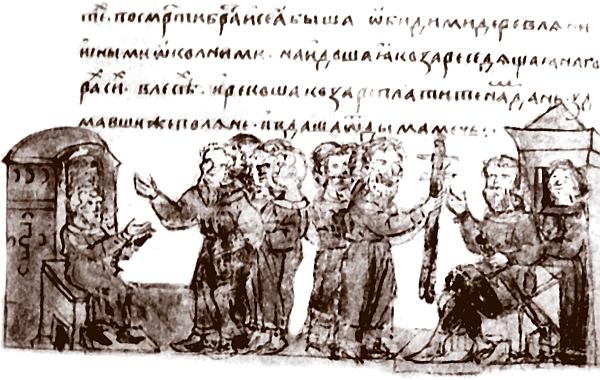 те҃. посмр҃ти бра҃и сеа быша ѿбидими деревлѧни
иными ѡколними. наидоша ꙗ козаре седѧщаа на го
ра҃ си҃. в лесѣ҃. и рекоша козаре платите на дань зд
мавши же полѧне. и вдаша ѿ дыма мечь: